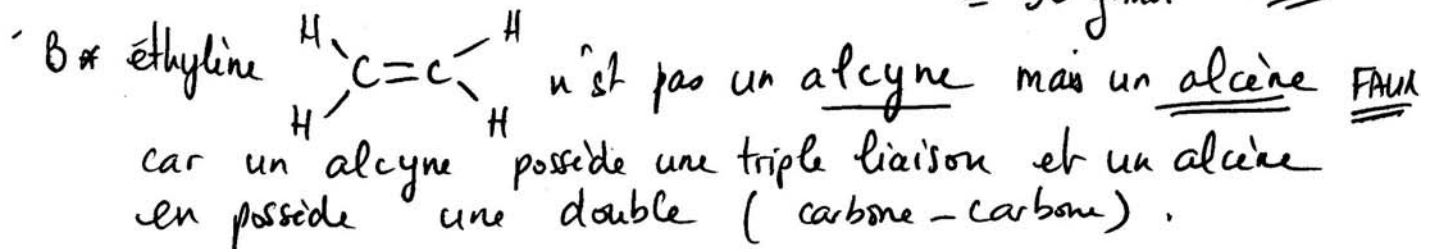 B * éthylène H H C=C H H n'est pas un alcyne mais un alcène FAUX
car un alcyne possède une triple liaison et un alcène
en possède une double ( carbone - carbone ) .